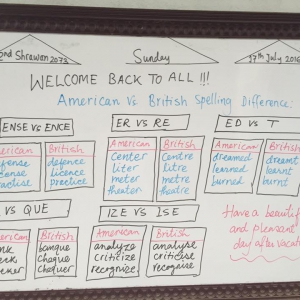 2nd Shrawan 2073 Sunday 17th July 2016
WELCOME BACK TO ALL !!!
American Vs British Spelling Difference:
ENSE Vs ENCE
ER Vs RE
ED Vs T
American British
defense defence
license licence
practise practice
American British
Center Centre
liter litre
meter metre
theater theatre
American British
dreamed dreamt
learned learnt
burned burnt
Vs QUE
IZE Vs ISE
American British
banque
cheque
chequer
American British
analyze analyse
criticize criticise
recognize recognise
Have a beautiful
and pleasant
day after vacation